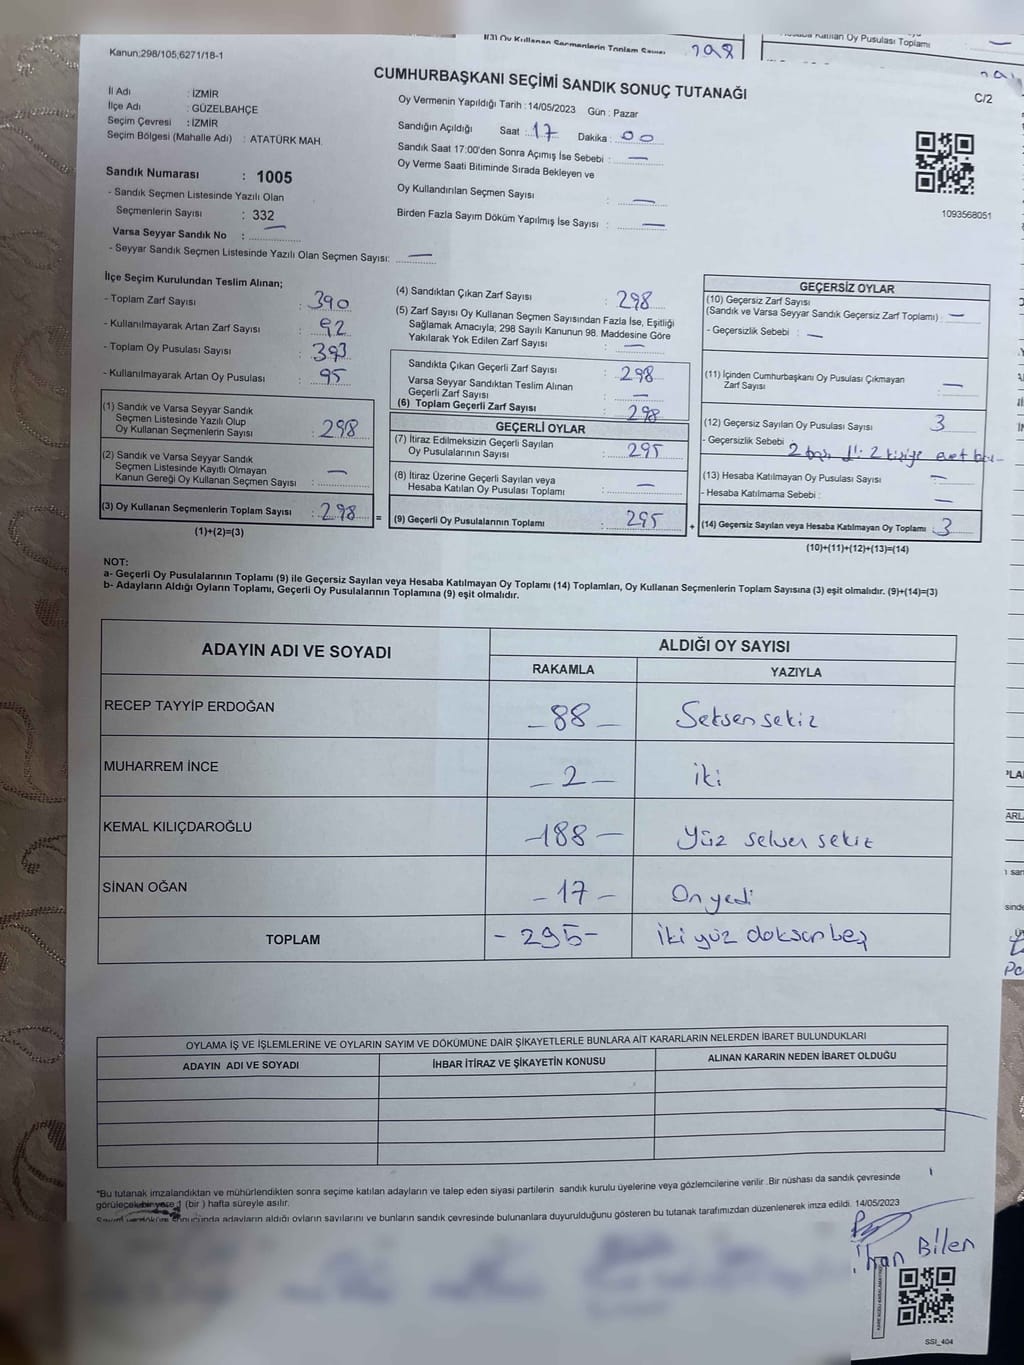 (3) Oy Kullanan Seçmenlerin Toplam Sayısı 298
Katılan Oy Pusulası Toplamı —
Kanun;298/105;6271/18-1
CUMHURBAŞKANI SEÇİMİ SANDIK SONUÇ TUTANAĞI
C/2
İl Adı : İZMİR
İlçe Adı : GÜZELBAHÇE
Seçim Çevresi : İZMİR
Seçim Bölgesi (Mahalle Adı) : ATATÜRK MAH.
Sandık Numarası : 1005
- Sandık Seçmen Listesinde Yazılı Olan
Seçmenlerin Sayısı : 332
Varsa Seyyar Sandık No : —
- Seyyar Sandık Seçmen Listesinde Yazılı Olan Seçmen Sayısı: —
Oy Vermenin Yapıldığı Tarih : 14/05/2023 Gün : Pazar
Sandığın Açıldığı Saat : 17 Dakika : 00
Sandık Saat 17:00'den Sonra Açımış İse Sebebi : —
Oy Verme Saati Bitiminde Sırada Bekleyen ve
Oy Kullandırılan Seçmen Sayısı : —
Birden Fazla Sayım Döküm Yapılmış İse Sayısı : —
1093568051
İlçe Seçim Kurulundan Teslim Alınan;
- Toplam Zarf Sayısı : 390
- Kullanılmayarak Artan Zarf Sayısı : 92
- Toplam Oy Pusulası Sayısı : 393
- Kullanılmayarak Artan Oy Pusulası : 95
(1) Sandık ve Varsa Seyyar Sandık
Seçmen Listesinde Yazılı Olup
Oy Kullanan Seçmenlerin Sayısı : 298
(2) Sandık ve Varsa Seyyar Sandık
Seçmen Listesinde Kayıtlı Olmayan
Kanun Gereği Oy Kullanan Seçmen Sayısı : —
(3) Oy Kullanan Seçmenlerin Toplam Sayısı : 298 =
(1)+(2)=(3)
(4) Sandıktan Çıkan Zarf Sayısı : 298
(5) Zarf Sayısı Oy Kullanan Seçmen Sayısından Fazla İse, Eşitliği
Sağlamak Amacıyla; 298 Sayılı Kanunun 98. Maddesine Göre
Yakılarak Yok Edilen Zarf Sayısı : —
Sandıkta Çıkan Geçerli Zarf Sayısı : 298
Varsa Seyyar Sandıktan Teslim Alınan
Geçerli Zarf Sayısı : —
(6) Toplam Geçerli Zarf Sayısı : 298
GEÇERLİ OYLAR
(7) İtiraz Edilmeksizin Geçerli Sayılan
Oy Pusulalarının Sayısı : 295
(8) İtiraz Üzerine Geçerli Sayılan veya
Hesaba Katılan Oy Pusulası Toplamı : —
(9) Geçerli Oy Pusulalarının Toplamı : 295 +
GEÇERSİZ OYLAR
(10) Geçersiz Zarf Sayısı
(Sandık ve Varsa Seyyar Sandık Geçersiz Zarf Toplamı) : —
- Geçersizlik Sebebi : —
(11) İçinden Cumhurbaşkanı Oy Pusulası Çıkmayan
Zarf Sayısı : —
(12) Geçersiz Sayılan Oy Pusulası Sayısı : 3
- Geçersizlik Sebebi 2 2 kişiye evet
(13) Hesaba Katılmayan Oy Pusulası Sayısı : —
- Hesaba Katılmama Sebebi : —
(14) Geçersiz Sayılan veya Hesaba Katılmayan Oy Toplamı : 3
(10)+(11)+(12)+(13)=(14)
NOT:
a- Geçerli Oy Pusulalarının Toplamı (9) ile Geçersiz Sayılan veya Hesaba Katılmayan Oy Toplamı (14) Toplamları, Oy Kullanan Seçmenlerin Toplam Sayısına (3) eşit olmalıdır. (9)+(14)=(3)
b- Adayların Aldığı Oyların Toplamı, Geçerli Oy Pusulalarının Toplamına (9) eşit olmalıdır.
ADAYIN ADI VE SOYADI ALDIĞI OY SAYISI
RAKAMLA YAZIYLA
RECEP TAYYİP ERDOĞAN — 88 — Seksen sekiz
MUHARREM İNCE — 2 — iki
KEMAL KILIÇDAROĞLU — 188 — Yüz seksen sekiz
SİNAN OĞAN — 17 — On yedi
TOPLAM - 295 - iki yüz doksan beş
OYLAMA İŞ VE İŞLEMLERİNE VE OYLARIN SAYIM VE DÖKÜMÜNE DAİR ŞİKAYETLERLE BUNLARA AİT KARARLARIN NELERDEN İBARET BULUNDUKLARI
ADAYIN ADI VE SOYADI İHBAR İTİRAZ VE ŞİKAYETİN KONUSU ALINAN KARARIN NEDEN İBARET OLDUĞU
*Bu tutanak imzalandıktan ve mühürlendikten sonra seçime katılan adayların ve talep eden siyasi partilerin sandık kurulu üyelerine veya gözlemcilerine verilir .Bir nüshası da sandık çevresinde
görülecek bir yere 1 (bir ) hafta süreyle asılır.
Sayım ve döküm sonucunda adayların aldığı oyların sayılarını ve bunların sandık çevresinde bulunanlara duyurulduğunu gösteren bu tutanak tarafımızdan düzenlenerek imza edildi. 14/05/2023
Bilen
SSI_404